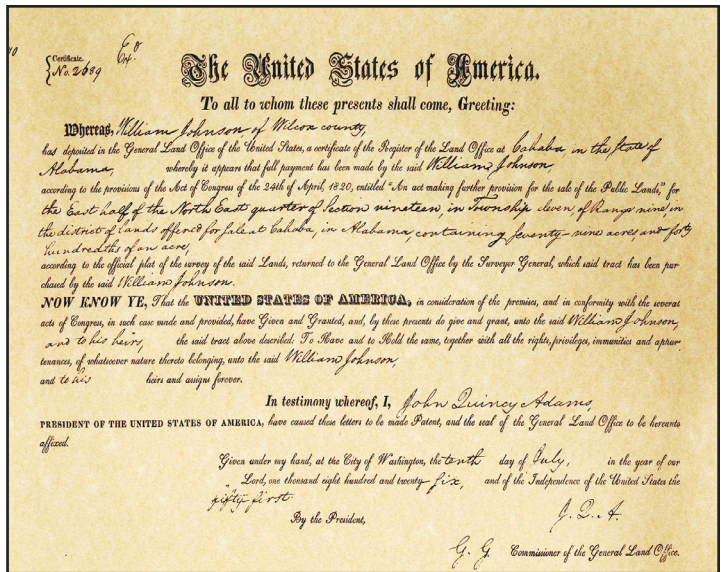 Certificate.
No. 2689
The United States of America.
To all to whom these presents shall come, Greeting:
Whereas, William Johnson of Wilcox county,
has deposited in the General Land Office of the United States, a certificate of the Register of the Land Office at Cahaba, in the State of
Alabama, whereby it appears that full payment has been made by the said William Johnson,
according to the provisions of the Act of Congress of the 24th of April, 1820, entitled "An act making further provision for the sale of the Public Lands," for
the East half of the North East quarter of Section nineteen, in Township eleven, of Range nine, in
the district of Lands offered for Sale at Cahaba, in Alabama, containing seventy-nine acres, and forty
hundredths of an acre,
according to the official plat of the survey of the said Lands, returned to the General Land Office by the Surveyor General, which said tract has been pur
chased by the said William Johnson.
NOW KNOW YE, That the UNITED STATES OF AMERICA, in consideration of the premises, and in conformity with the several
acts of Congress, in such case made and provided, have Given and Granted, and, by these presents do give and grant, unto the said William Johnson,
and to his heirs, the said tract above described: To Have and to Hold the same, together with all the rights, privileges, immunities and appur
tenances, of whatsoever nature thereto belonging, unto the said William Johnson,
and to his heirs and assigns forever.
In testimony whereof, I, John Quincy Adams,
PRESIDENT OF THE UNITED STATES OF AMERICA, have caused these letters to be made Patent, and the seal of the General Land Office to be hereunto
affixed.
Given under my hand, at the City of Washington, the tenth day of July, in the year of our
Lord, one thousand eight hundred and twenty six, and of the Independence of the United States the
fifty-first
By the President, J. Q. A.
G. G Commissioner of the General Land Office.